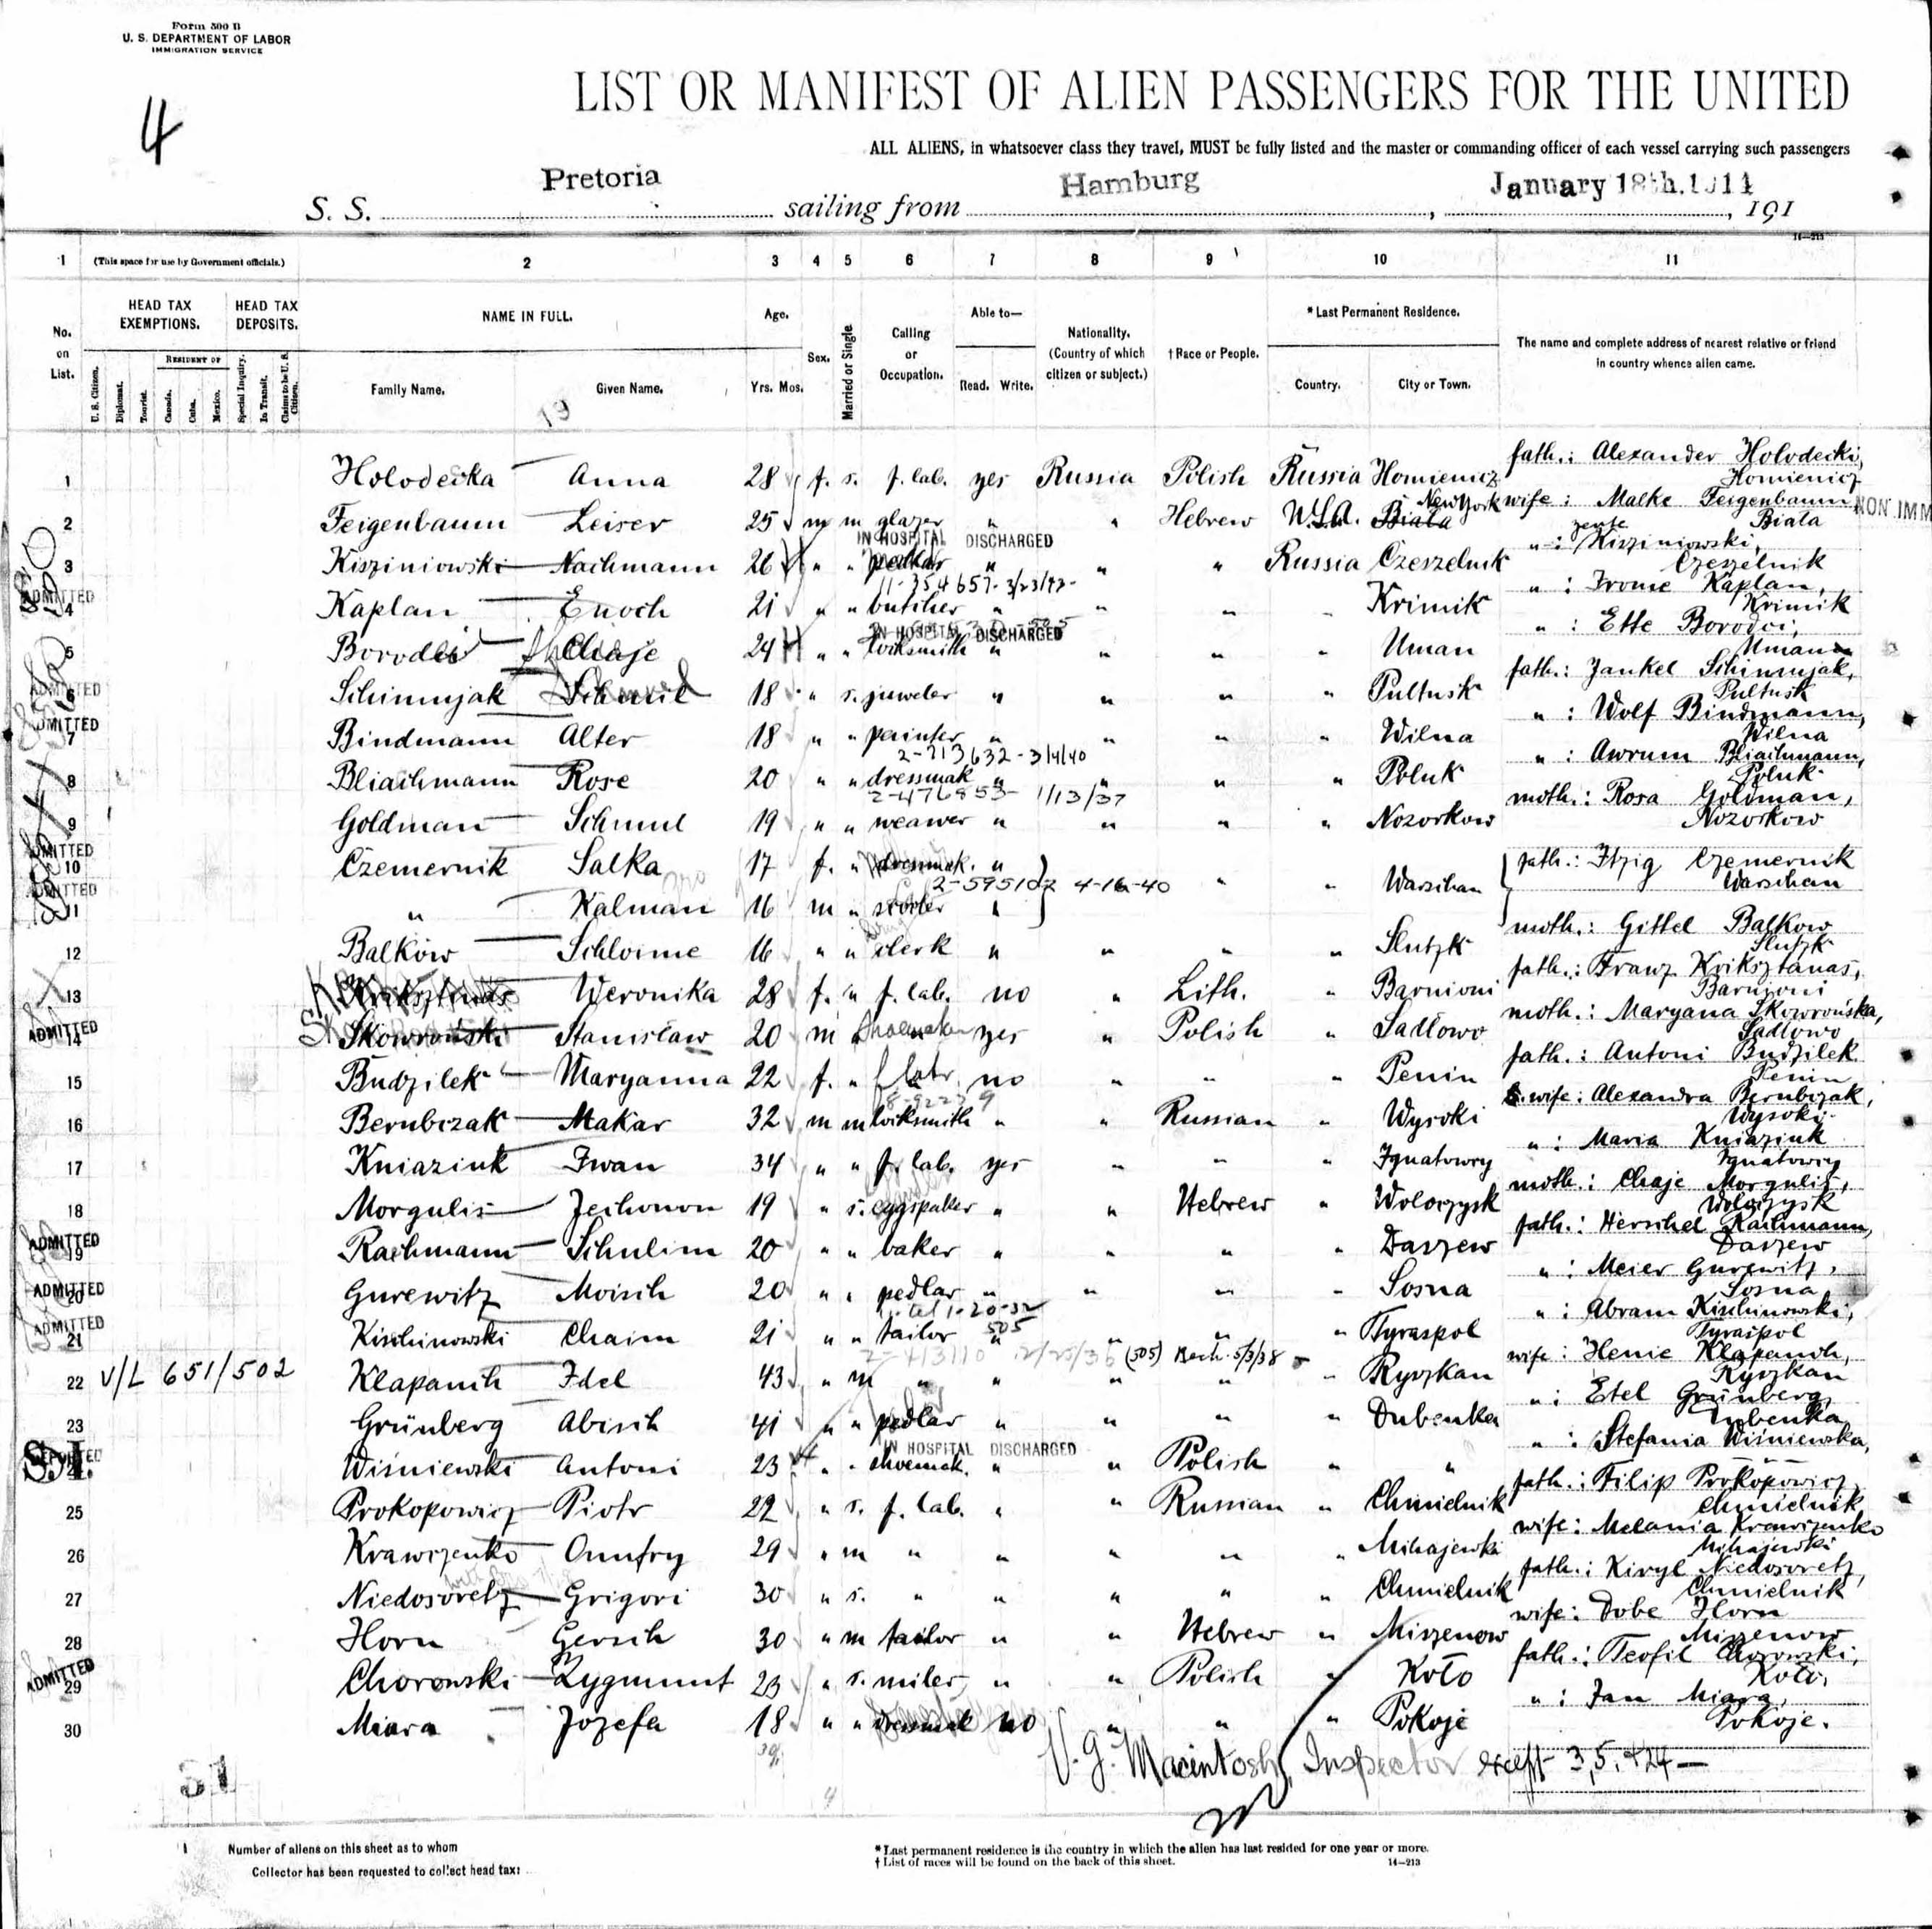 Form 500 B
U. S. DEPARTMENT OF LABOR
IMMIGRATION SERVICE
4
LIST OR MANIFEST OF ALIEN PASSENGERS FOR THE UNITED
ALL ALIENS, in whatsoever class they travel, MUST be fully listed and the master or commanding officer of each vessel carrying such passengers
S. S. Pretoria sailing from Hamburg, January 18th.1914, 191
14—213
1 (This space for use by Government officials.) 2 3 4 5 6 7 8 9 10 11
No. on List.
HEAD TAX EXEMPTIONS.
HEAD TAX DEPOSITS.
RESIDENT OF
U. S. Citizen. Diplomat. Tourist. Canada. Cuba. Mexico. Special Inquiry. In Transit. Claims to be U. S. Citizen.
NAME IN FULL.
Family Name. Given Name.
19
Age.
Yrs. Mos.
Sex.
Married or Single.
Calling or Occupation.
Able to—
Read. Write.
Nationality. (Country of which citizen or subject.)
†Race or People.
*Last Permanent Residence.
Country. City or Town.
The name and complete address of nearest relative or friend in country whence alien came.
1 Holodecka Anna 28 f. s. f. lab. yes Russia Polish Russia Homienicz fath.: Alexander Holodecki, Homienicz
2 Feigenbaum Leiser 25 m m glazer " " Hebrew U.S.A. New York Biala wife: Malke Feigenbaum Biala
NON IMM
IN HOSPITAL DISCHARGED
3 Kisziniowski Nachmann 26 " " pedlar " " " Russia Czeszelnik " : Kisziniowski, Czeszelnik
11-354657- 3/23/42-
ADMITTED
4 Kaplan Enoch 21 " " butcher " " " " Krimik " : Frome Kaplan, Krimik
IN HOSPITAL DISCHARGED
5 Borodei Chaje 24 " " locksmith " " " " Uman " : Ette Borodei, Uman
ADMITTED
6 Schimnjak Schmil 18 " s. juweler " " " " Pultusk fath.: Jankel Schimnjak, Pultusk
ADMITTED
7 Bindmann Alter 18 " " painter " " " " Wilna " : Wolf Bindmann, Wilna
2-713632-3/4/40
8 Bliachmann Rose 20 " " dressmak " " " " Poluk " : Awrum Bliachmann, Poluk
2-476853- 1/13/37
9 Goldman Schmul 19 " " weawer " " " " Nozorkow moth.: Rosa Goldman, Nozorkow
ADMITTED
10 Czemernik Salka 17 f. " dressmak. " " " Warschau fath.: Itzig Czemernik Warschau
2-595102 4-16-40
ADMITTED
11 " Kalman 16 m "  "
12 Balkow Schloime 16 " " clerk " " " " Slutzk moth.: Gittel Balkow Slutzk
13 Kriksztanas Weronika 28 f. " f. lab. no " Lith. " Barnioni fath.: Franz Kriksztanas, Barnioni
ADMITTED
14 Skowroński Stanisław 20 m " Shoemaker yes " Polish " Sadlowo moth.: Maryana Skowrońska, Sadlowo
15 Budzilek Maryanna 22 f. " f labr. no " " " Penin fath.: Antoni Budzilek Penin
8-92279
16 Bernbczak Makar 32 m m locksmith " " Russian " Wysoki wife: Alexandra Bernbczak, Wysoki
17 Kniaziuk Iwan 34 " " f. lab. yes " " " Ignatowry " : Maria Kniaziuk Ignatowry
18 Morgulis Jechonon 19 " s. eggspaker " " Hebrew " Woloczysk moth.: Chaje Morgulis, Woloczysk
ADMITTED
19 Rachmann Schulim 20 " " baker " " " " Daszew fath.: Herschel Rachmann, Daszew
ADMITTED
20 Gurewitz Moisch 20 " " pedlar " " " " Sosna " : Meier Gurewitz, Sosna
1-20-32
505
ADMITTED
21 Kischinowski Chaim 21 " " tailor " " " " Tyraspol " : Abram Kischinowski, Tyraspol
2-413110 12/23/36 (505) 5/3/38
22 V/L 651/502 Klapanch Idel 43 " m " " " " " Ryszkan wife: Henie Klapanch, Ryszkan
23 Grünberg Abisch 41 " " pedlar " " " " Dubenka " : Etel Grünberg, Dubenka
IN HOSPITAL DISCHARGED
S.I. DEPORTED
24 Wiśniewski Antoni 23 " " shoemak. " " Polish " " " : Stefania Wiśniewska,
25 Prokopowicz Piotr 22 " s. f. lab. " " Russian " Chmielnik fath.: Filip Prokopowicz Chmielnik
26 Krawczenko Onufry 29 " m " " " " " Mihajewki wife: Melania Krawczenko Mihajewski
27 Niedosoretz Grigori 30 " s. " " " " " Chmielnik fath.: Kiryl Niedosoretz, Chmielnik
28 Horn Gersch 30 " m tailor " " Hebrew " Miszenow wife: Dobe Horn Miszenow
ADMITTED
29 Chorowski Zygmunt 23 " s. miler " " Polish " Koło fath.: Teofil Chorowski, Koło.
30 Miara Jozefa 18 " " dressmak no " " " Pokoje " : Jan Miara, Pokoje.
31
V. G. Macintosh, Inspector except 3, 5, +24 —
Number of aliens on this sheet as to whom
Collector has been requested to collect head tax:
*Last permanent residence is the country in which the alien has last resided for one year or more.
†List of races will be found on the back of this sheet. 14—213